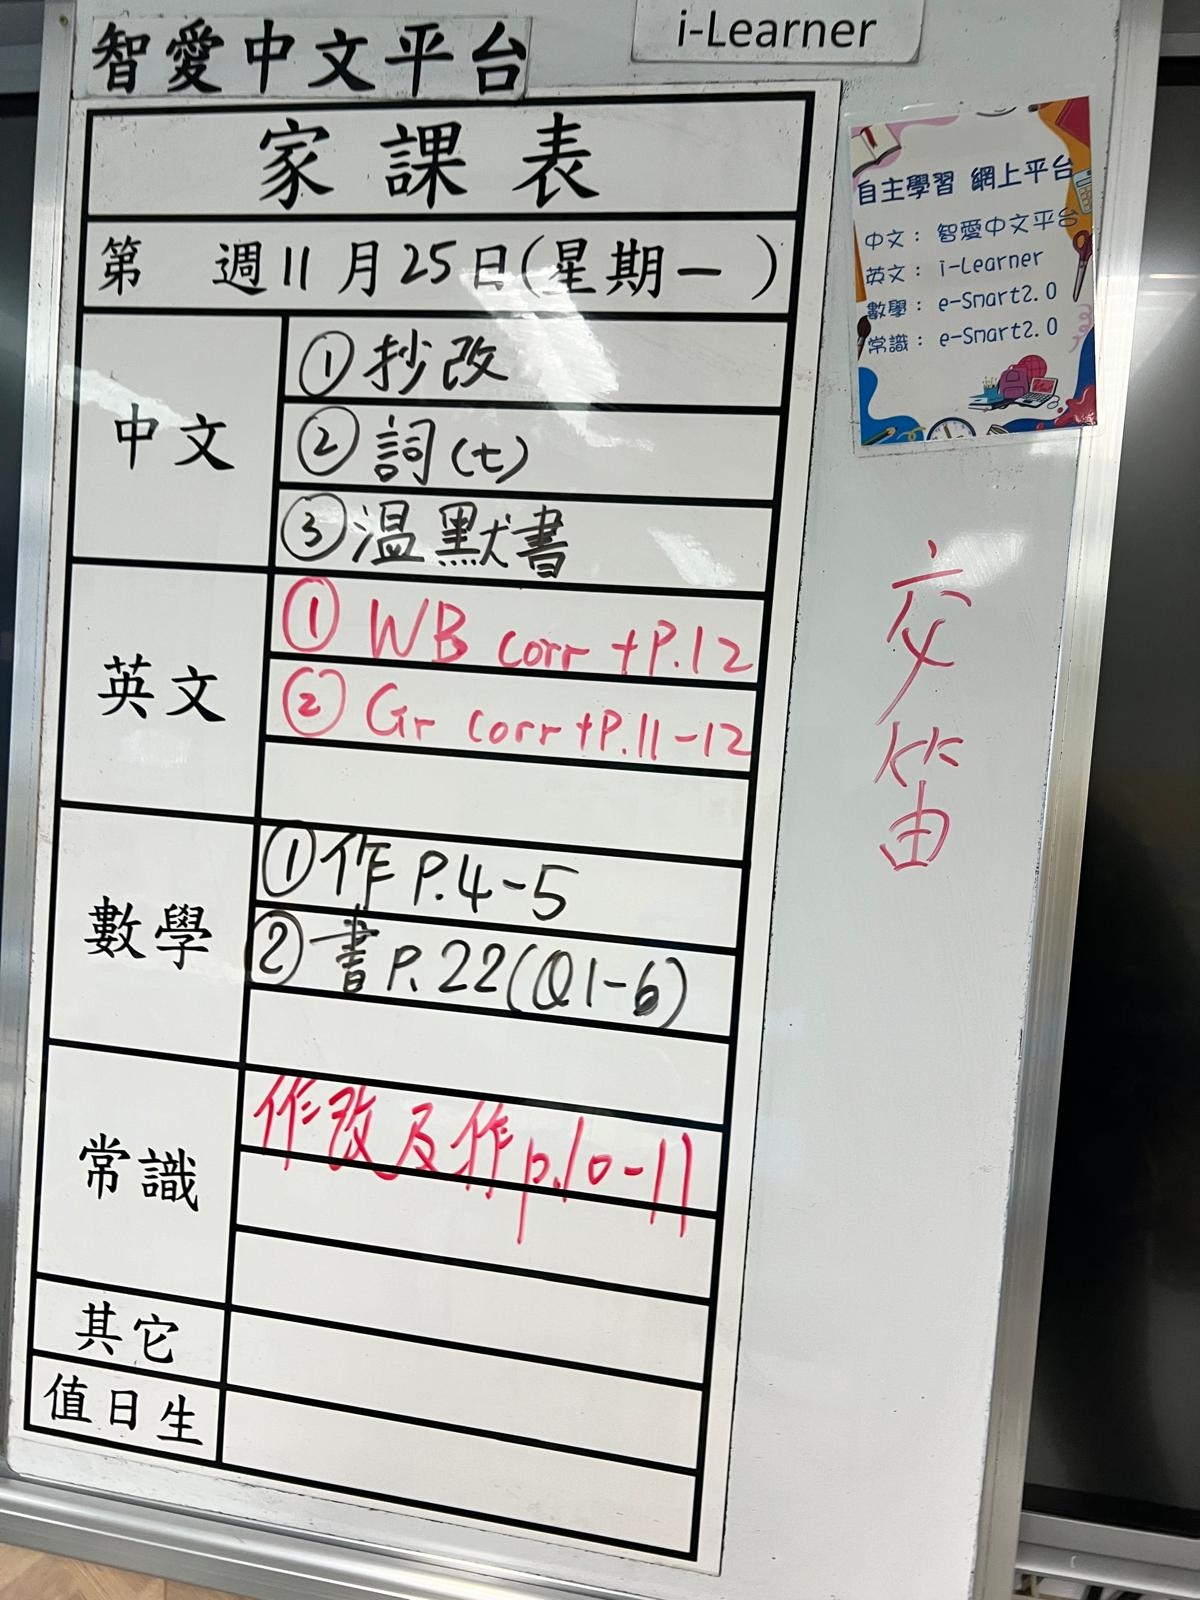 智愛中文平台
i-Learner
家課表
第 週11月25日(星期一 )
中文
①抄改
②詞(七)
③温默書
英文
① WB corr +P.12
② Gr corr +P.11-12
數學
①作P.4-5
②書P.22(Q1-6)
常識
作改及作p.10-11
其它
值日生
自主學習 網上平台
中文： 智愛中文平台
英文： i-Learner
數學： e-Smart2.0
常識： e-Smart2.0
交笛